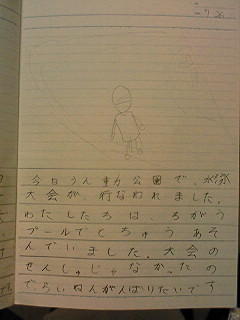 今日うん動公園で、水泳
大会が、行なわれました。
わたしたちは、ちがう
プールでとちゅうあそ
んでいました。大会の
せんしゅじゃなかったの
でらいねんがんばりたいです